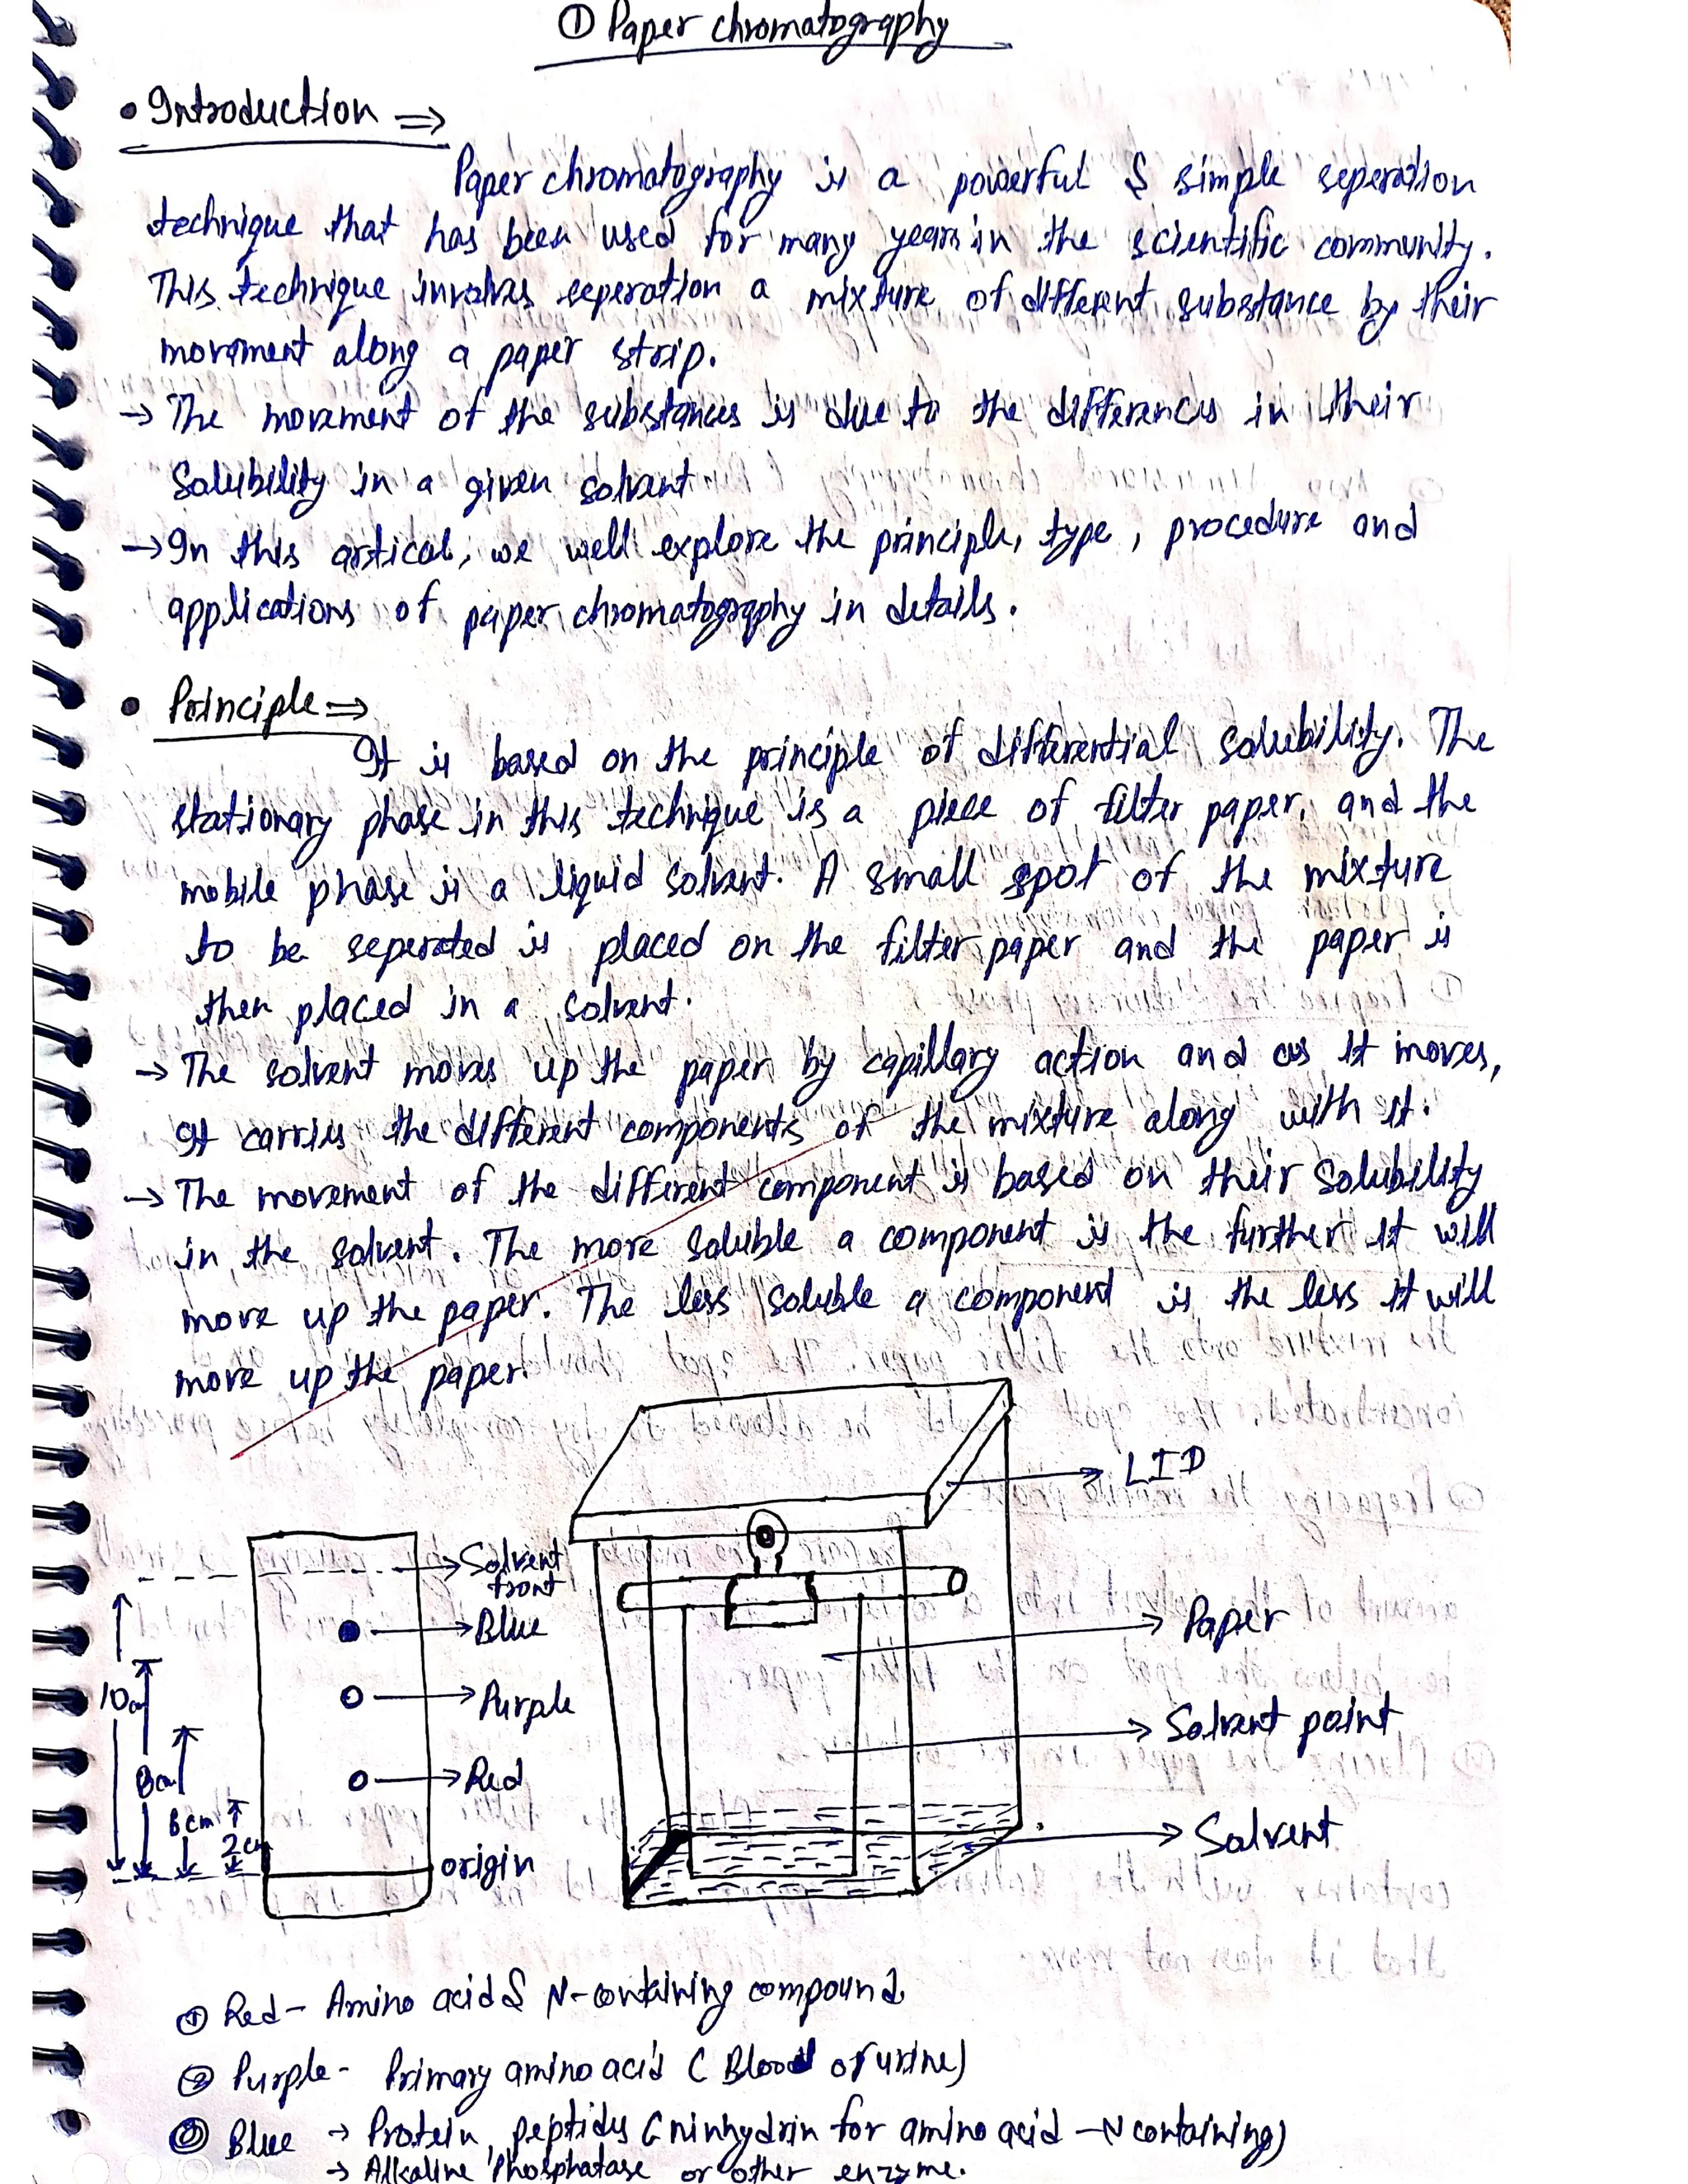 ① Paper chromatography
• Introduction ⇒
Paper chromatography is a powerful & simple seperation
technique that has been used for many years in the scientific community.
This technique involves seperation a mixture of different substance by their
movement along a paper strip.
→ The movement of the substances is due to the differences in their
Solubility in a given solvent
→ In this artical, we well explore the principle, type, procedure and
applications of paper chromatography in details.
• Principle ⇒
It is based on the principle of differential solubility. The
stationary phase in this technique is a piece of filter paper, and the
mobile phase is a liquid solvent. A small spot of the mixture
to be seperated is placed on the filter paper and the paper is
then placed in a solvent.
→ The solvent moves up the paper by capillary action and as it moves,
It carries the different components of the mixture along with it.
→ The movement of the different component is based on their solubility
in the solvent. The more soluble a component is the further it will
move up the paper. The less soluble a component is the less it will
move up the paper.
LID
Solvent
front
Blue
Paper
10cm
Purple
Solvent point
8cm
Red
6cm
2cm
Solvent
origin
① Red - Amino acid & N-containing compound
② Purple - Primary amino acid (Blood of urine)
③ Blue → Protein, peptides (ninhydrin for amino acid - N containing)
→ Alkaline Phosphatase or other enzyme.